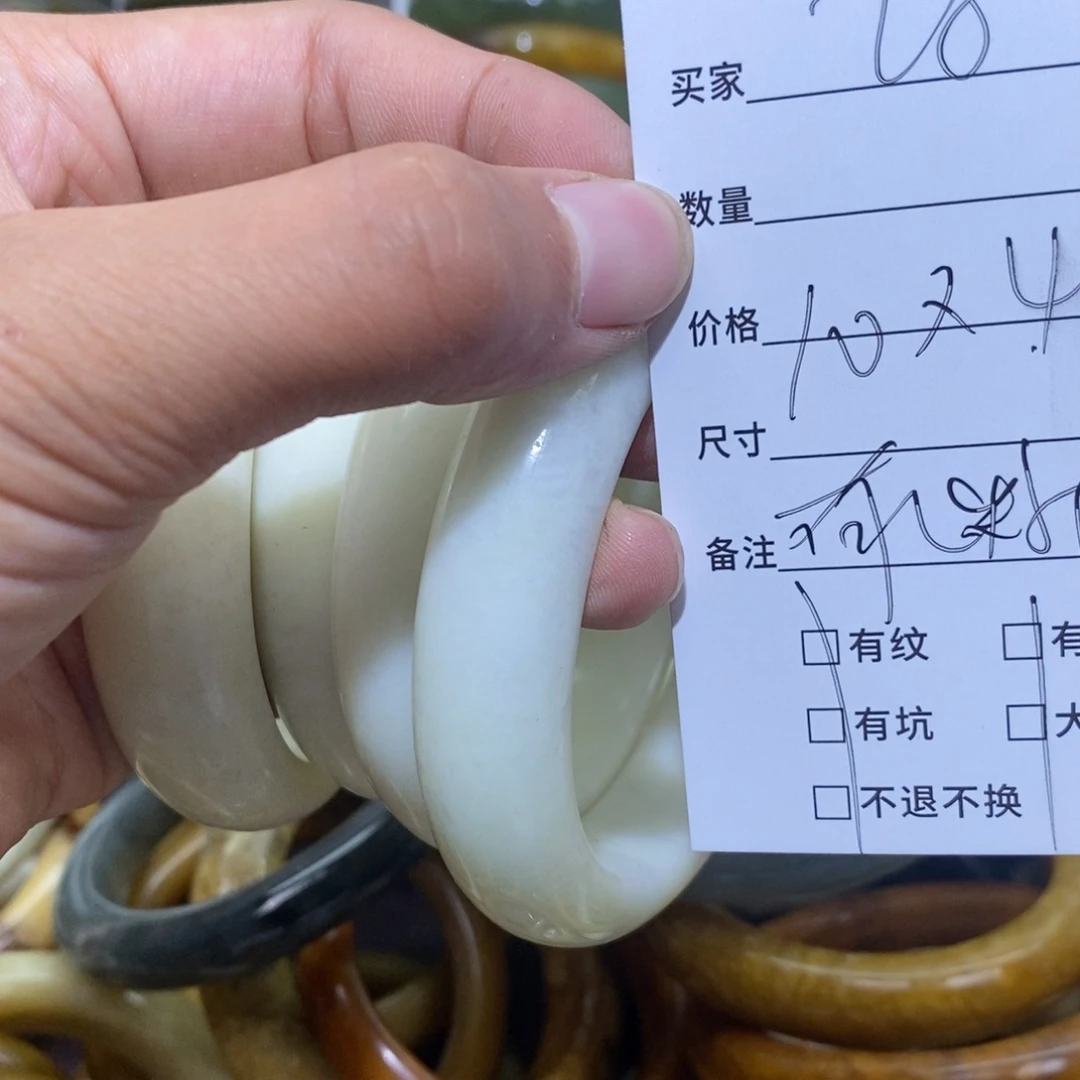 买家
数量
价格 10 x 4
尺寸
备注
□有纹 □有
□有坑 □大
□不退不换